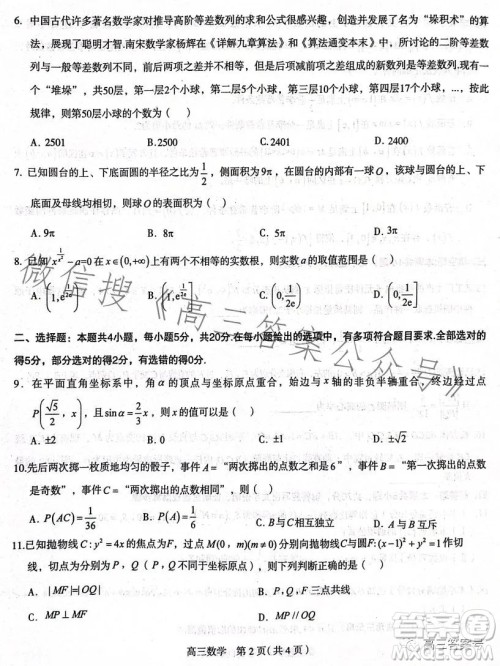 6. 中国古代许多著名数学家对推导高阶等差数列的求和公式很感兴趣，创造并发展了名为“垛积术”的算
法，展现了聪明才智.南宋数学家杨辉在《详解九章算法》和《算法通变本末》中，所讨论的二阶等差数
列与一般等差数列不同，前后两项之差并不相等，但是后项减前项之差组成的新数列是等差数列.现有
一个“堆垛”，共50层，第一层2个小球，第二层5个小球，第三层10个小球，第四层17个小球，...，按此
规律，则第50层小球的个数为（ ）
A. 2501 B. 2500 C. 2401 D. 2400
7. 已知圆台的上、下底面圆的半径之比为1/2，侧面积为9π，在圆台的内部有一球O，该球与圆台的上、下
底面及母线均相切，则球O的表面积为（ ）
A. 9π B. 8π C. 5π D. 3π
8. 已知x^(1/x²)-a=0在x∈(0,+∞)上有两个不相等的实数根，则实数a的取值范围是（ ）
A. (1,e^(1/2e)) C. (0,1/2e) D. (0,1/2e)
二、选择题：本题共4小题，每小题5分，共20分.在每小题给出的选项中，有多项符合题目要求.全部选对的
得5分，部分选对的得2分，有选错的得0分.
9. 在平面直角坐标系中，角α的顶点与坐标原点重合，始边与x轴的非负半轴重合，终边经过点
P(√5/2,x)，且sinα=2/3x，则x的值可以是（ ）
A. ±2 B. ±1 C. 0 D. ±√2
10.先后两次掷一枚质地均匀的骰子，事件A=“两次掷出的点数之和是6”，事件B=“第一次掷出的点数
是奇数”，事件C=“两次掷出的点数相同”，则（ ）
A. P(AC)=1/36 B. P(A)=1/6 C. B与C相互独立 D. A与B互斥
11.已知抛物线C:y²=4x的焦点为F，过点M(0,m)(m≠0)分别向抛物线C与圆F:(x-1)²+y²=1作切
线，切点为分别为P,Q（P,Q不同于坐标原点），则下列判断正确的是（ ）
A. |MF|=|OQ| B. P,Q,F三点共线
C. MP⊥MF D. MP//OQ
高三数学 第2页(共4页)
微信搜《高三答案公众号》